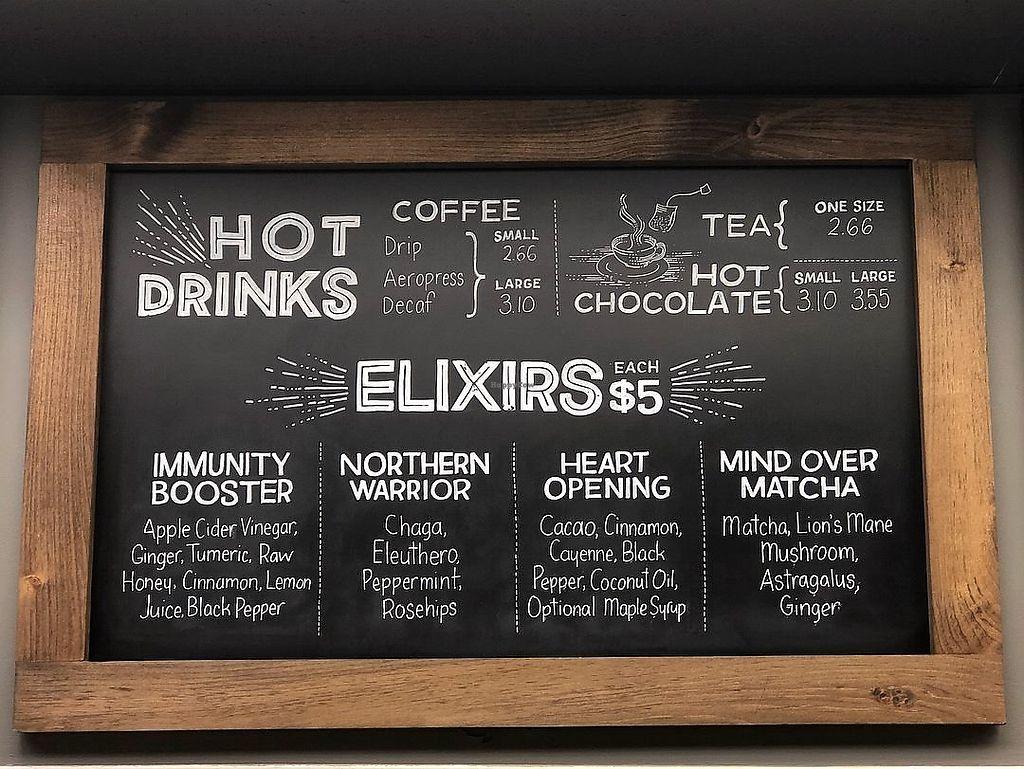 HOT
DRINKS
COFFEE
Drip
Aeropress
Decaf
SMALL
2.66
LARGE
3.10
TEA
ONE SIZE
2.66
HOT
CHOCOLATE
SMALL LARGE
3.10 3.55
ELIXIRS EACH
$5
IMMUNITY
BOOSTER
Apple Cider Vinegar,
Ginger, Tumeric, Raw
Honey, Cinnamon, Lemon
Juice, Black Pepper
NORTHERN
WARRIOR
Chaga,
Eleuthero,
Peppermint,
Rosehips
HEART
OPENING
Cacao, Cinnamon,
Cayenne, Black
Pepper, Coconut Oil,
Optional Maple Syrup
MIND OVER
MATCHA
Matcha, Lion's Mane
Mushroom,
Astragalus,
Ginger